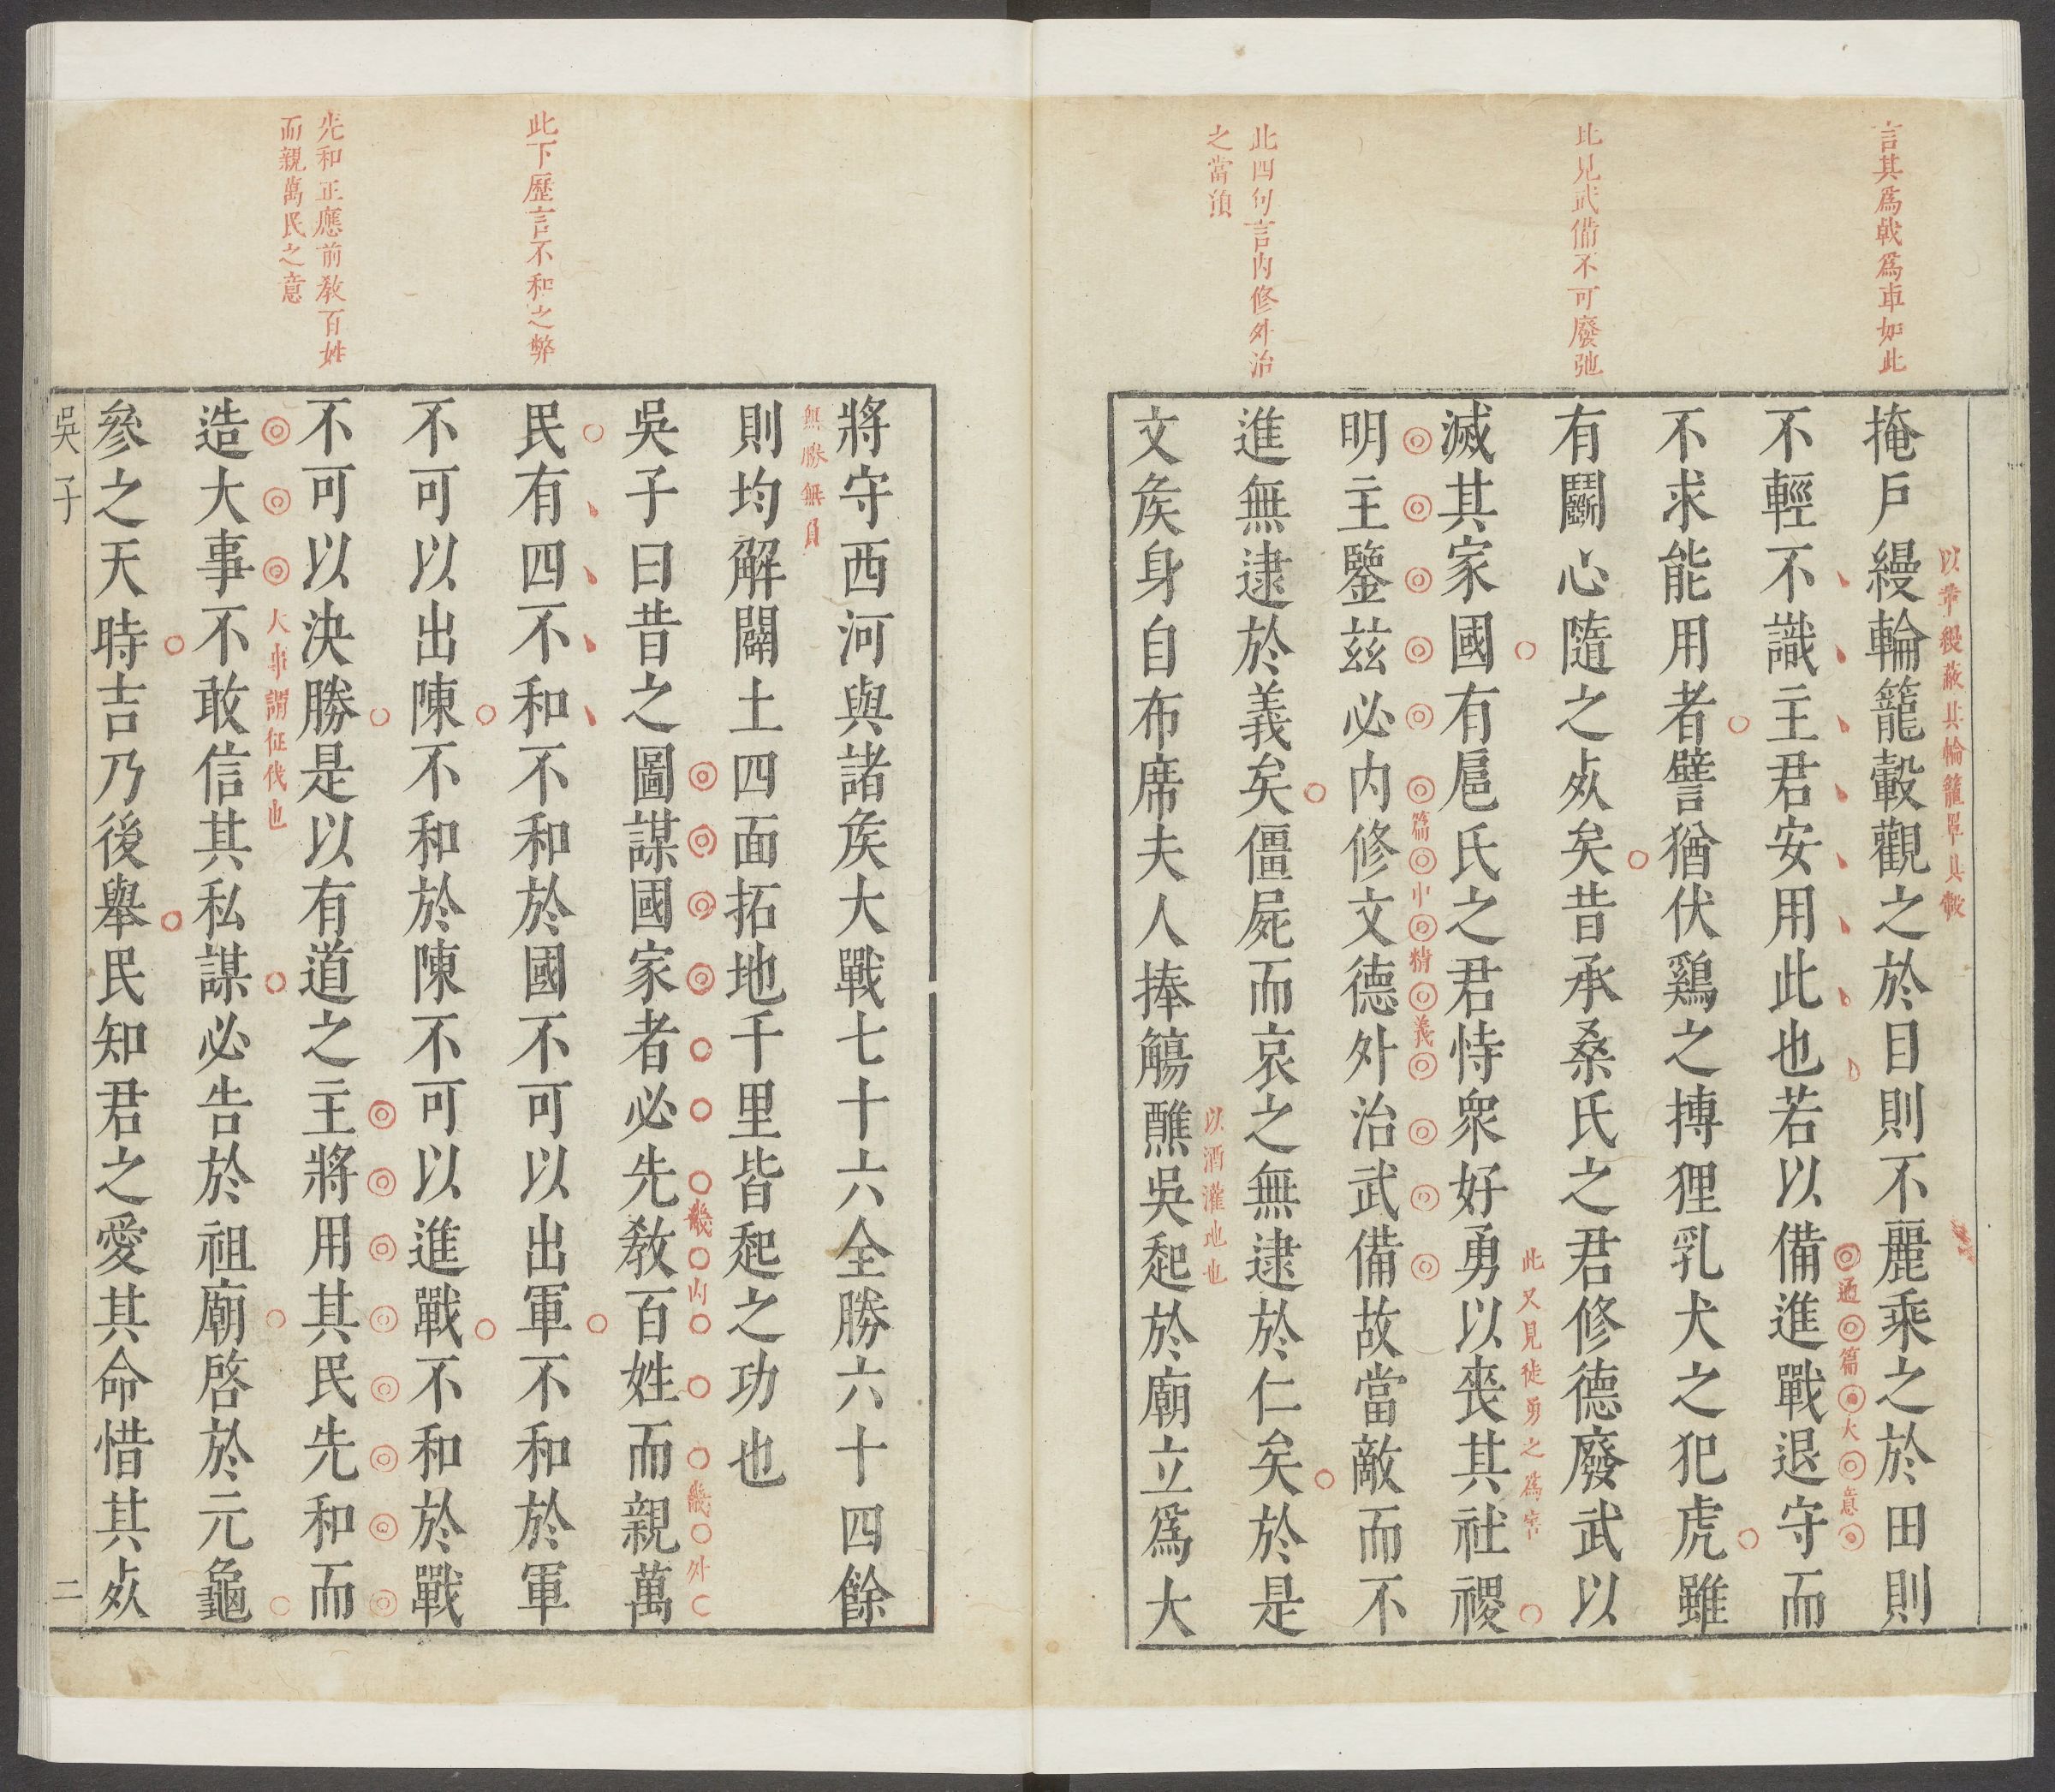 言其爲戟爲車如此
此見武備不可廢弛
此四句言內修外治
之當湏
掩戶縵輪籠轂觀之於目則不麗乘之於田則
以韋縵蔽其輪籠罩其轂
不輕不識主君安用此也若以備進戰退守而
通篇大意
不求能用者譬猶伏鷄之搏狸乳犬之犯虎雖
有鬭心隨之㱙矣昔承桑氏之君修德廢武以
滅其家國有扈氏之君恃衆好勇以喪其社稷
此又見徒勇之爲害
明主鑒茲必內修文德外治武備故當敵而不
篇中精義
進無逮於義矣僵屍而哀之無逮於仁矣於是
文矦身自布席夫人捧觴醮吳起於廟立爲大
以酒灌地也
此下歷言不和之弊
先和正應前教百姓
而親萬民之意
將守西河與諸矦大戰七十六全勝六十四餘
則均解闢土四面拓地千里皆起之功也
無勝無負
吳子曰昔之圖謀國家者必先教百姓而親萬
幾內幾外
民有四不和不和於國不可以出軍不和於軍
不可以出陳不和於陳不可以進戰不和於戰
不可以決勝是以有道之主將用其民先和而
造大事不敢信其私謀必告於祖廟啓於元龜
大事謂征伐也
參之天時吉乃後舉民知君之愛其命惜其㱙
吳子
二